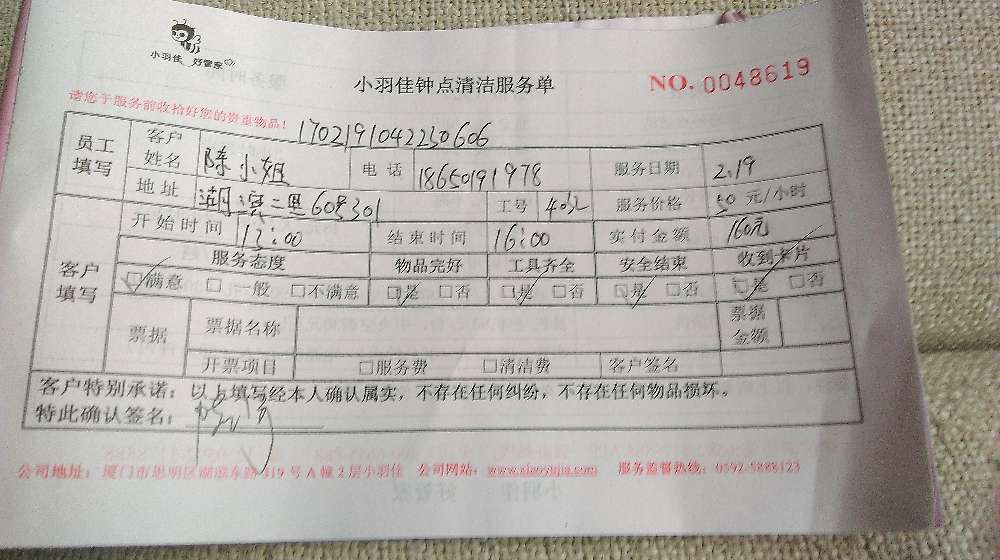 小羽佳 好管家
小羽佳钟点清洁服务单
NO. 0048619
请您于服务前收拾好您的贵重物品!
1702191042230606
员工填写 客户姓名 陈小姐 电话 18650191978 服务日期 2.19
地址 湖滨二里60号301 工号 服务价格 50 元/小时
开始时间 13:00 结束时间 16:00 实付金额 160元
客户填写 服务态度 物品完好 工具齐全 安全结束 收到卡片
☑满意 □一般 □不满意 ☑是 □否 ☑是 □否 ☑是 □否 ☑是 □否
票据 票据名称 票据金额
开票项目 □服务费 □清洁费 客户签名
客户特别承诺：以上填写经本人确认属实，不存在任何纠纷，不存在任何物品损坏。
特此确认签名：
公司地址：厦门市思明区湖滨东路319号A幢2层小羽佳 公司网站：www.xiaoyujia.com 服务监督热线：0592-5888123